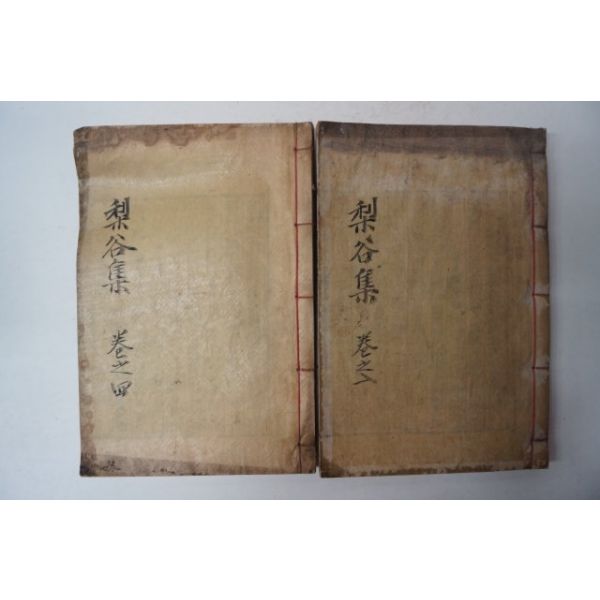 梨谷集 卷之二
梨谷集 卷之四